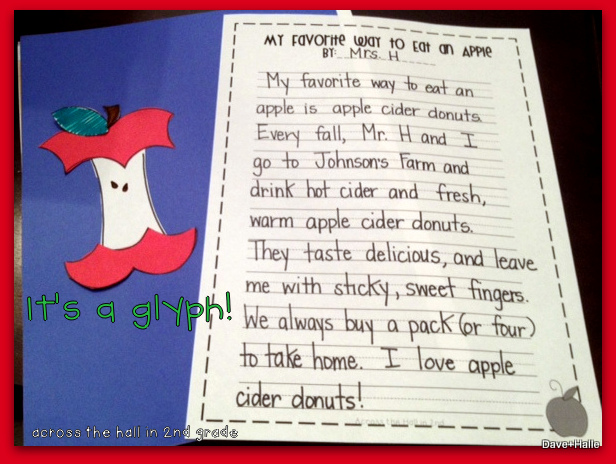 My Favorite Way to Eat an Apple
BY: Mrs. H
My favorite way to eat an
apple is apple cider donuts.
Every fall, Mr. H and I
go to Johnson's Farm and
drink hot cider and fresh,
warm apple cider donuts.
They taste delicious, and leave
me with sticky, sweet fingers.
We always buy a pack (or four)
to take home. I love apple
cider donuts!
Across the Hall in 2nd
It's a glyph!
across the hall in 2nd grade
Dave+Halle